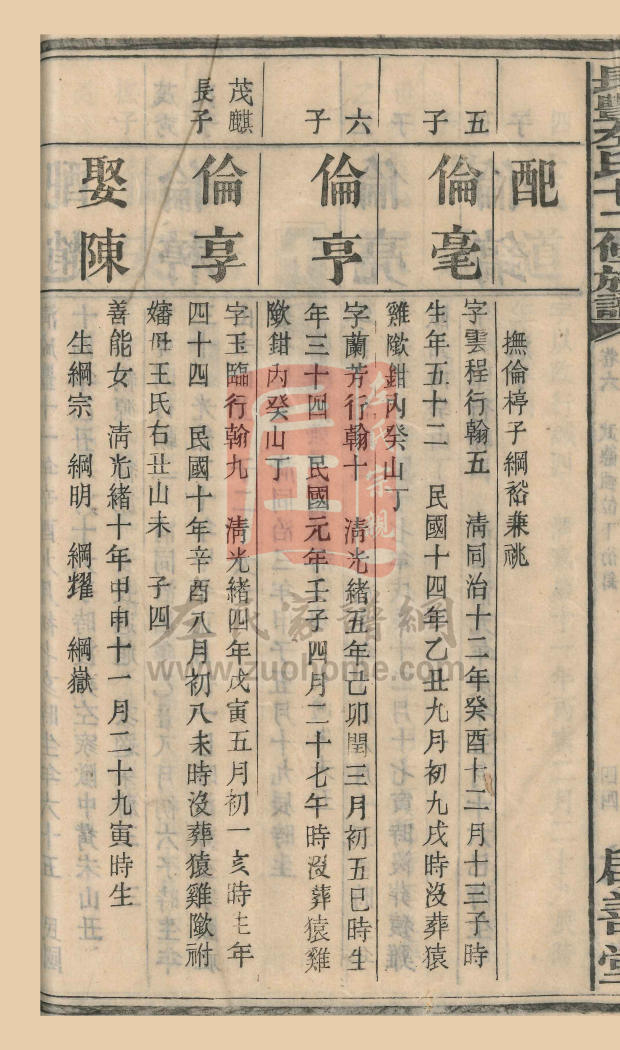 長豐左氏十二修族譜
卷六
啟善堂
配
撫倫楟子綱裕兼祧
五子
倫毫
字雲程行翰五 清同治十二年癸酉十二月十三子時
生年五十二 民國十四年乙丑九月初九戌時沒葬猿
雞歐鉗內癸山丁
六子
倫亨
字蘭芳行翰十 清光緒五年己卯閏三月初五巳時生
年三十四 民國元年壬子四月二十七午時沒葬猿雞
歐鉗內癸山丁
茂麒長子
倫享
字玉臨行翰九 清光緒四年戊寅五月初一亥時生年
四十四 民國十年辛酉八月初八未時沒葬猿雞歐祔
嬸母王氏右丑山未 子四
娶陳
善能女 清光緒十年甲申十一月二十九寅時生
生綱宗 綱明 綱耀 綱嶽
左氏家譜網
www.zuohome.com